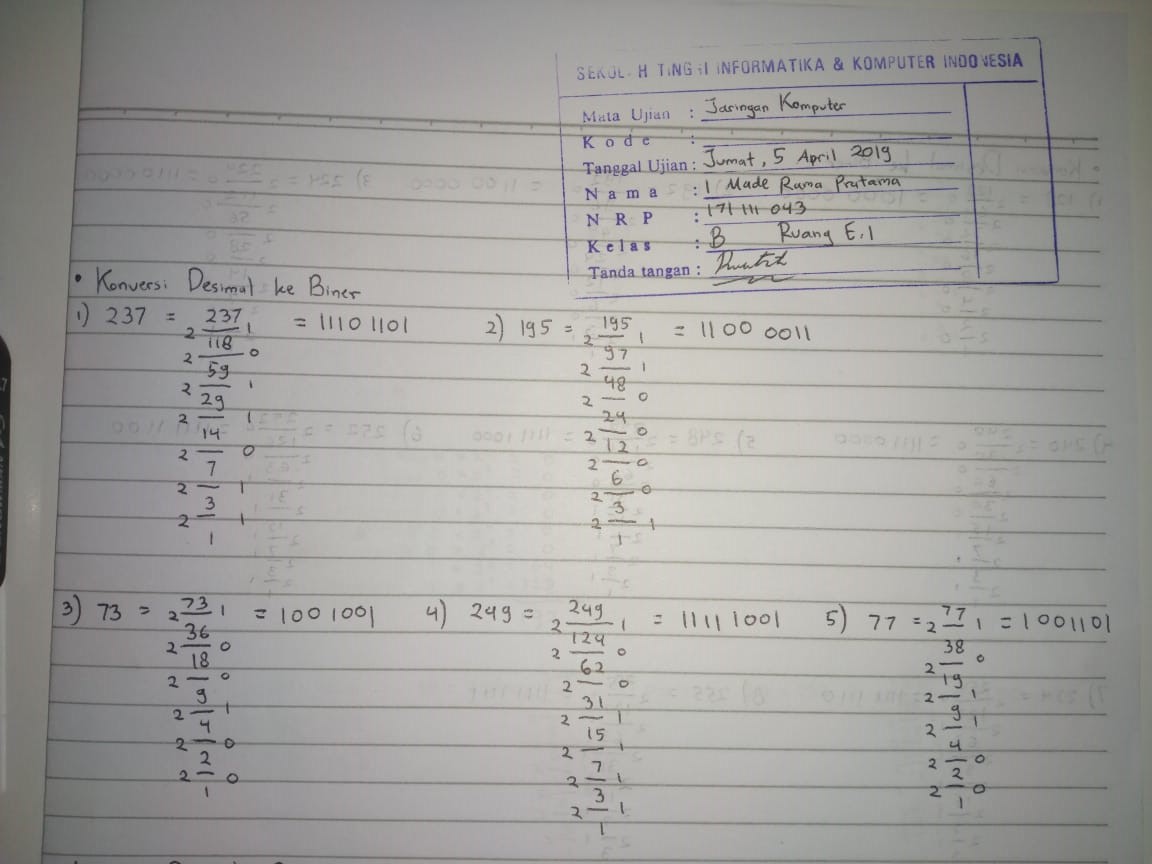 SEKOL H TINGGI INFORMATIKA & KOMPUTER INDONESIA
Mata Ujian : Jaringan Komputer
Kode :
Tanggal Ujian : Jumat, 5 April 2019
Nama : I Made Rama Pratama
NRP : 171 111 043
Kelas : B Ruang E.1
Tanda tangan :
• Konversi Desimal ke Biner
1) 237 = 237 = 1110 1101
2 1
118
2 0
59
2 1
29
2 1
14
2 0
7
2 1
3
2 1
1
2) 195 = 195 = 1100 0011
2 1
97
2 1
48
2 0
24
2 0
12
2 0
6
2 0
3
2 1
1
3) 73 = 2 73 1 = 1001001
36
2 0
18
2 0
9
2 1
4
2 0
2
2 0
1
4) 249 = 249 = 11111001
2 1
124
2 0
62
2 0
31
2 1
15
2 1
7
2 1
3
2 1
1
5) 77 = 2 77 1 = 1001101
38
2 0
19
2 1
9
2 1
4
2 0
2
2 0
1